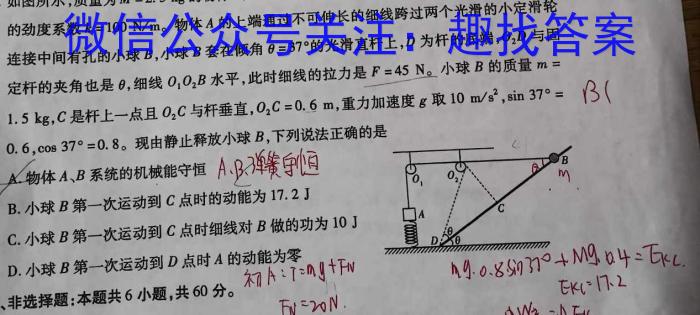 的劲度系数
物体 A 的上端通过不可伸长的细线跨过两个光滑的小定滑轮
微信公众号关注：趣找答案
连接中间有孔的小球 B，小球 B 套在倾角 θ=37°的光滑直杆上，D 为杆的
定杆的夹角也是 θ，细线 O₁O₂B 水平，此时细线的拉力是 F=45 N。小球 B 的质量 m=
1.5 kg，C 是杆上一点且 O₂C 与杆垂直，O₂C=0.6 m，重力加速度 g 取 10 m/s²，sin 37°=
B(
0.6，cos 37°=0.8。现由静止释放小球 B，下列说法正确的是
A. 物体 A、B 系统的机械能守恒
A.B.弹簧守恒
B. 小球 B 第一次运动到 C 点时的动能为 17.2 J
C. 小球 B 第一次运动到 C 点时细线对 B 做的功为 10 J
D. 小球 B 第一次运动到 D 点时 A 的动能为零
O₁
O₂
θ
B
m
A
C
D
θ
θ
初A：T=mg+FN
FN=20N.
mg·0.8sin37°+Mg·0.4=EKC
EKC=17.2
、非选择题：本题共 6 小题，共 60 分。